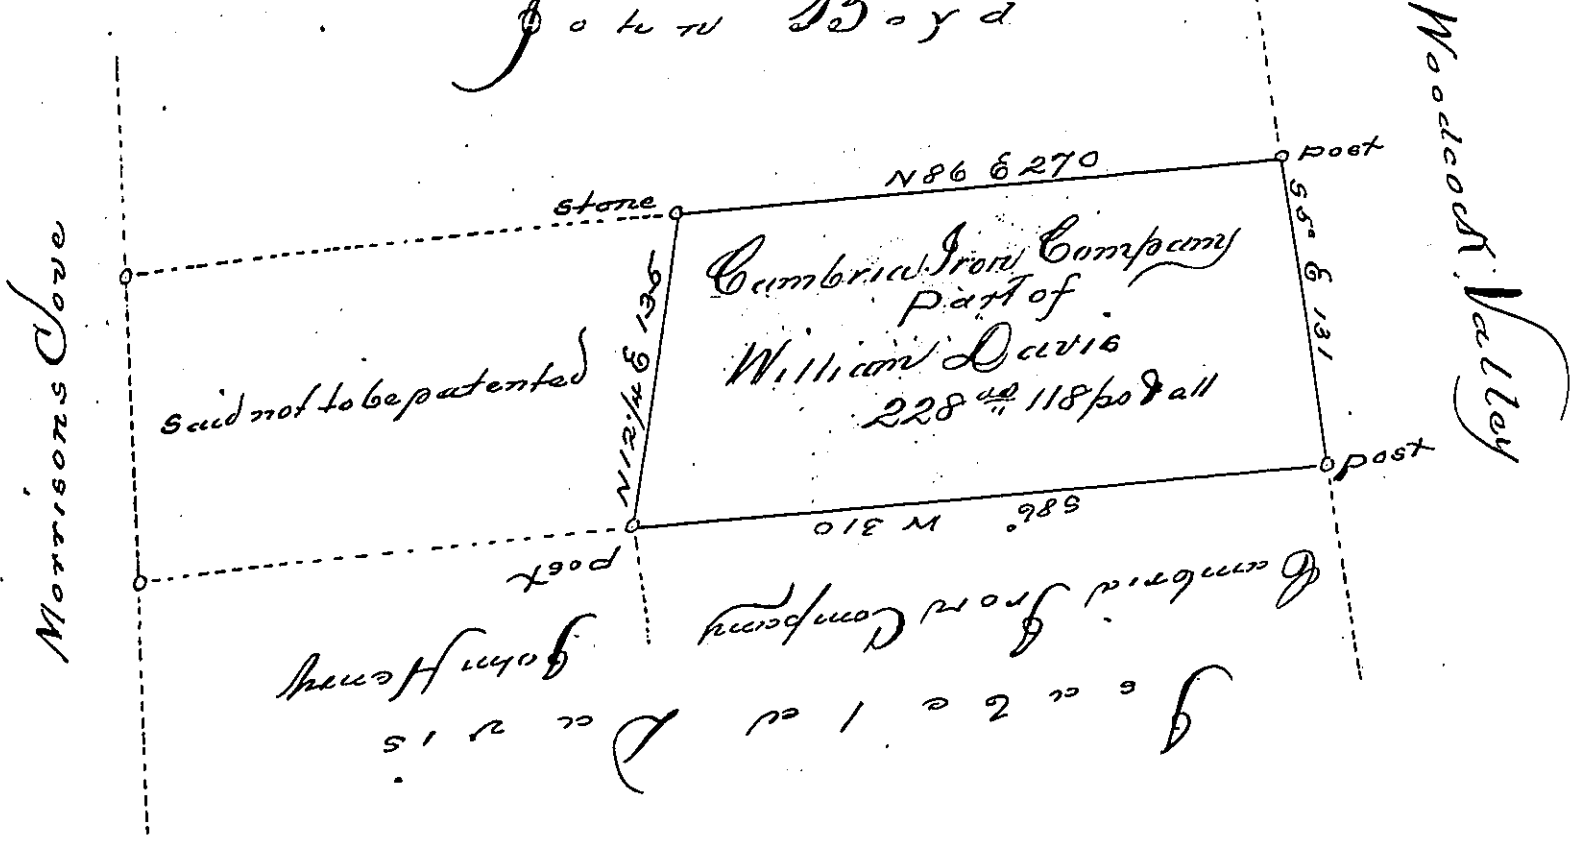 John Boyd
Woodcock Valley
Morrisons Cove
stone
N86 E 270
post
S5° E 131
Cambria Iron Company
part of
William Davis
228 as 118 ps & all
N12¼ E 136
said not to be patented
post
S86° W 310
post
Cambria Iron Company
John Henry
Davis